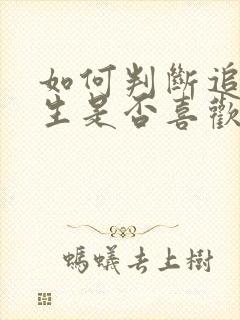 如何判斷追
生是否喜歡
螞蟻去上樹